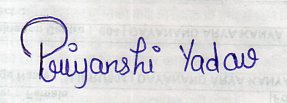 Priyanshi Yadav